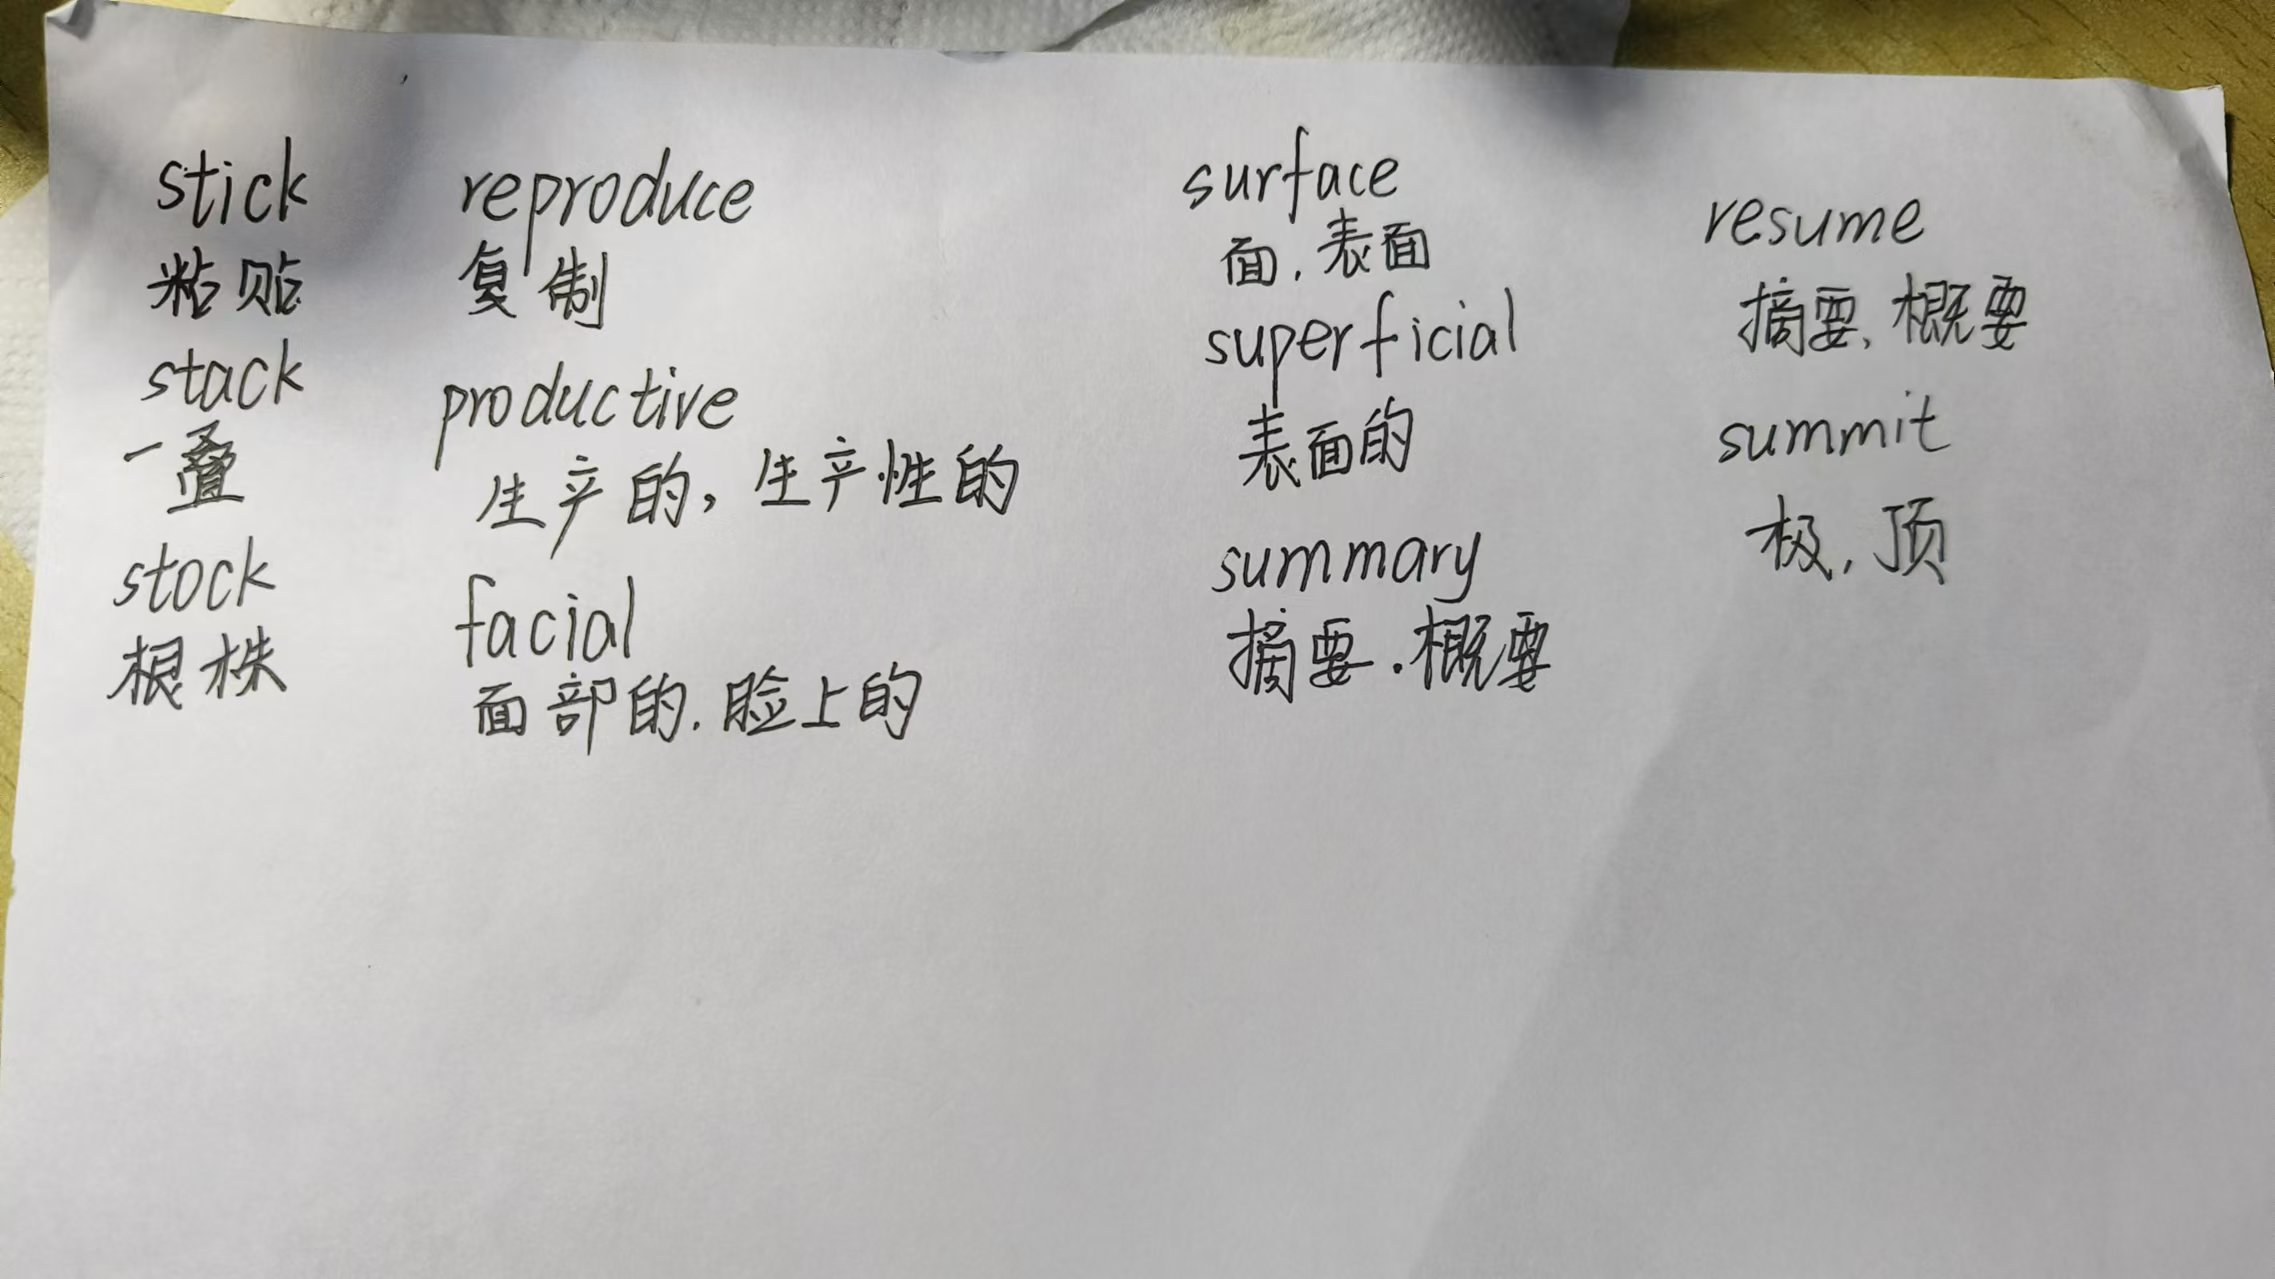 stick
粘贴
stack
一叠
stock
根株
reproduce
复制
productive
生产的，生产性的
facial
面部的.脸上的
surface
面，表面
superficial
表面的
summary
摘要.概要
resume
摘要，概要
summit
极，顶